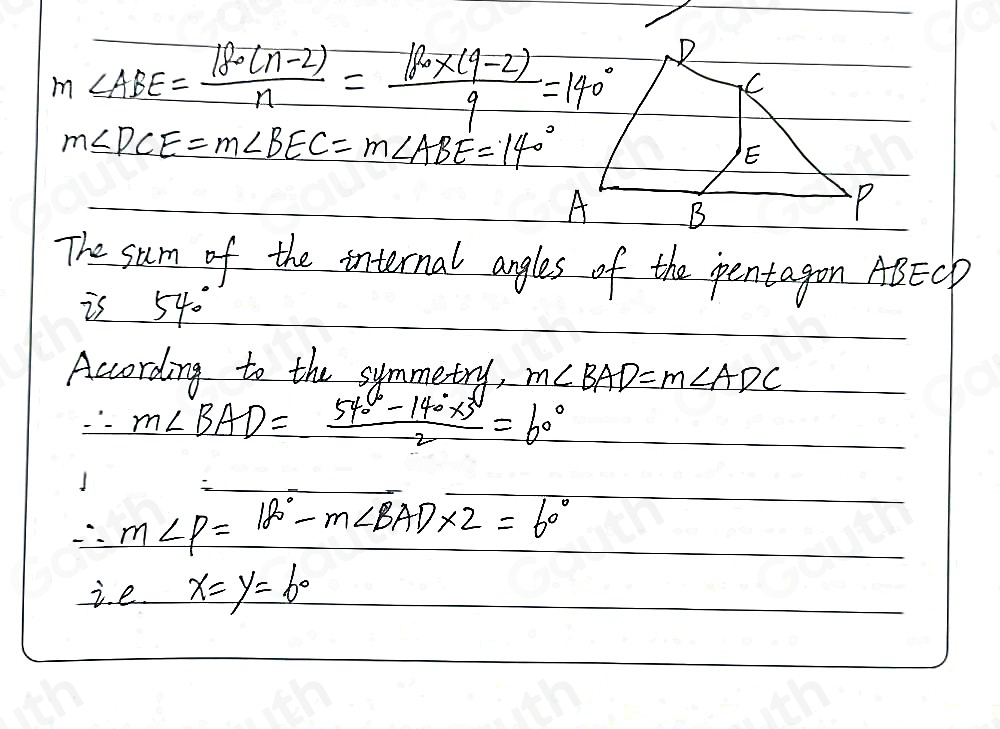 m∠ABE = 180(n-2)/n = 180×(9-2)/9 = 140°
m∠DCE = m∠BEC = m∠ABE = 140°
D
C
E
A
B
P
The sum of the internal angles of the pentagon ABECD
is 540°
According to the symmetry, m∠BAD = m∠ADC
∴ m∠BAD = 540° - 140°×3/2 = 60°
∴ m∠P = 180° - m∠BAD×2 = 60°
i.e. x = y = 60